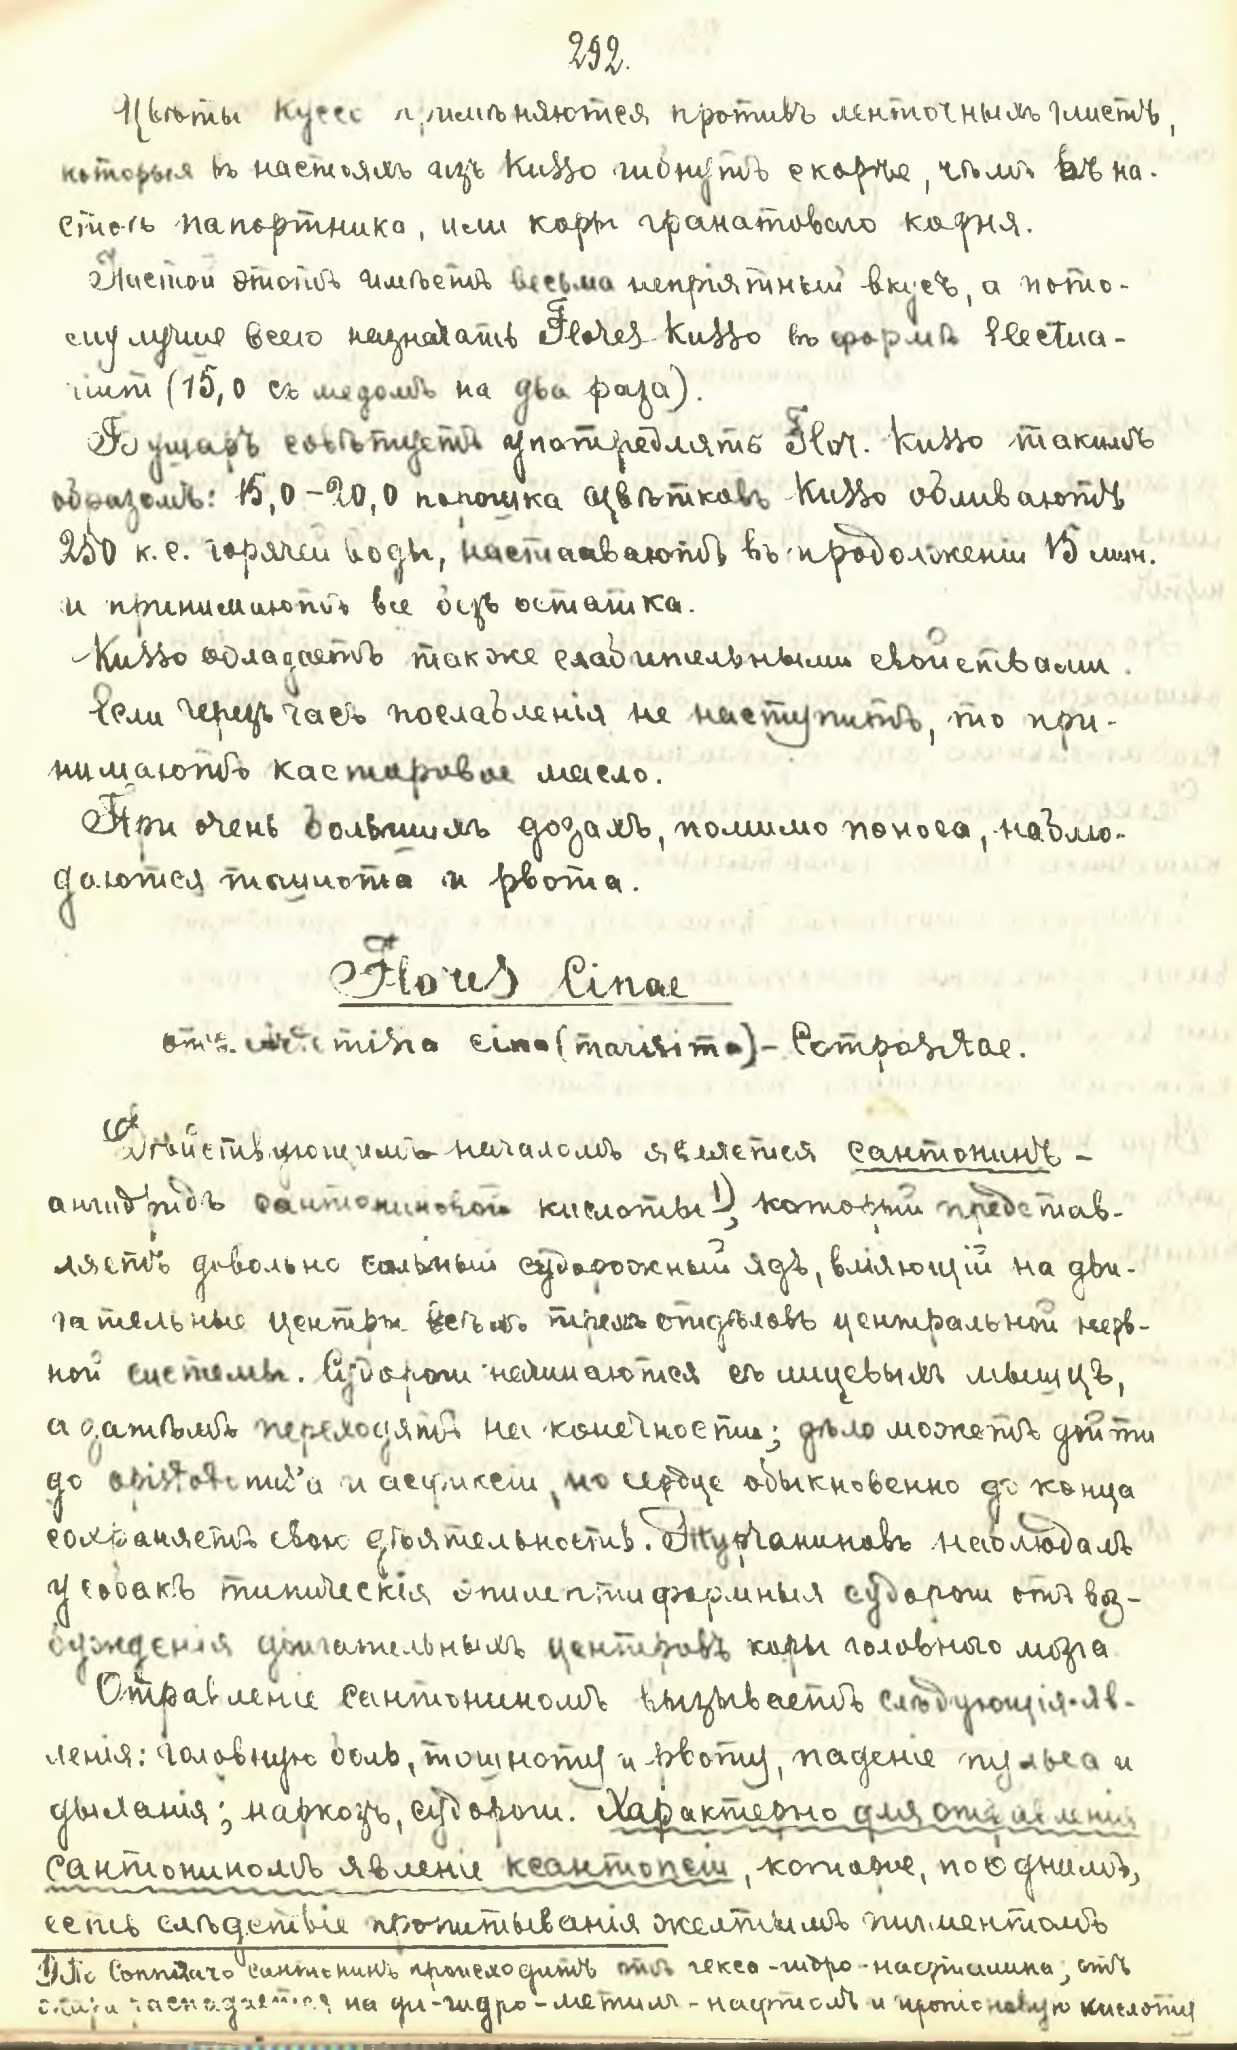 292.
Цвѣты Куссо примѣняются противъ ленточныхъ глистъ,
которыя въ настояхъ изъ Kusso гибнутъ скорѣе, чѣмъ въ на-
стоѣ папортника, или коры гранатоваго кодня.
Настой этотъ имѣетъ весьма непріятный вкусъ, а пото-
му лучше всего назначать Flores Kusso въ формѣ Electua-
rium (15,0 съ медомъ на два раза).
Бушаръ совѣтуетъ употреблять Flor. Kusso такимъ
образомъ: 15,0-20,0 порошка цвѣтковъ Kusso обливаютъ
250 к.с. горячей воды, настааваютъ въ продолженіи 15 мин.
и принимаютъ все безъ остатка.
Kusso обладаетъ также слабительными свойствами.
Если черезъ часъ послабленія не наступитъ, то при-
нимаютъ касторовое масло.
При очень большихъ дозахъ, помимо поноса, наблю-
даются тошнота и рвота.
Flores Cinae
отъ Artemisia cina (marisima) - Compositae.
Дѣйствующимъ началомъ является сантонинъ -
ангидридъ сантониновой кислоты 1), который представ-
ляетъ довольно сильный судорожный ядъ, вліяющій на дви-
гательные центры всѣхъ трехъ отдѣловъ центральной нерв-
ной системы. Судороги начинаются съ лицевыхъ мышцъ,
а затѣмъ переходятъ на конечности; дѣло можетъ дойти
до opistotonus'а и асфиксіи, но сердце обыкновенно до конца
сохраняетъ свою дѣятельность. Турчаниновъ наблюдалъ
у собакъ типическія эпилептиформныя судороги отъ воз-
бужденія двигательныхъ центровъ коры головного мозга
Отравленіе сантониномъ вызываетъ слѣдующія яв-
ленія: головную боль, тошноту и рвоту, паденіе пульса и
дыханія; наркозъ, судороги. Характерно для отравленія
сантониномъ явленіе ксантопсіи, которое, по однимъ,
есть слѣдствіе пропитыванія желтымъ пигментомъ
1) По Canniзаro сантонинъ происходитъ отъ гексо-гидро-нафталина; отъ
распадается на ди-гидро-метил-нафтолъ и пропіоновую кислоту